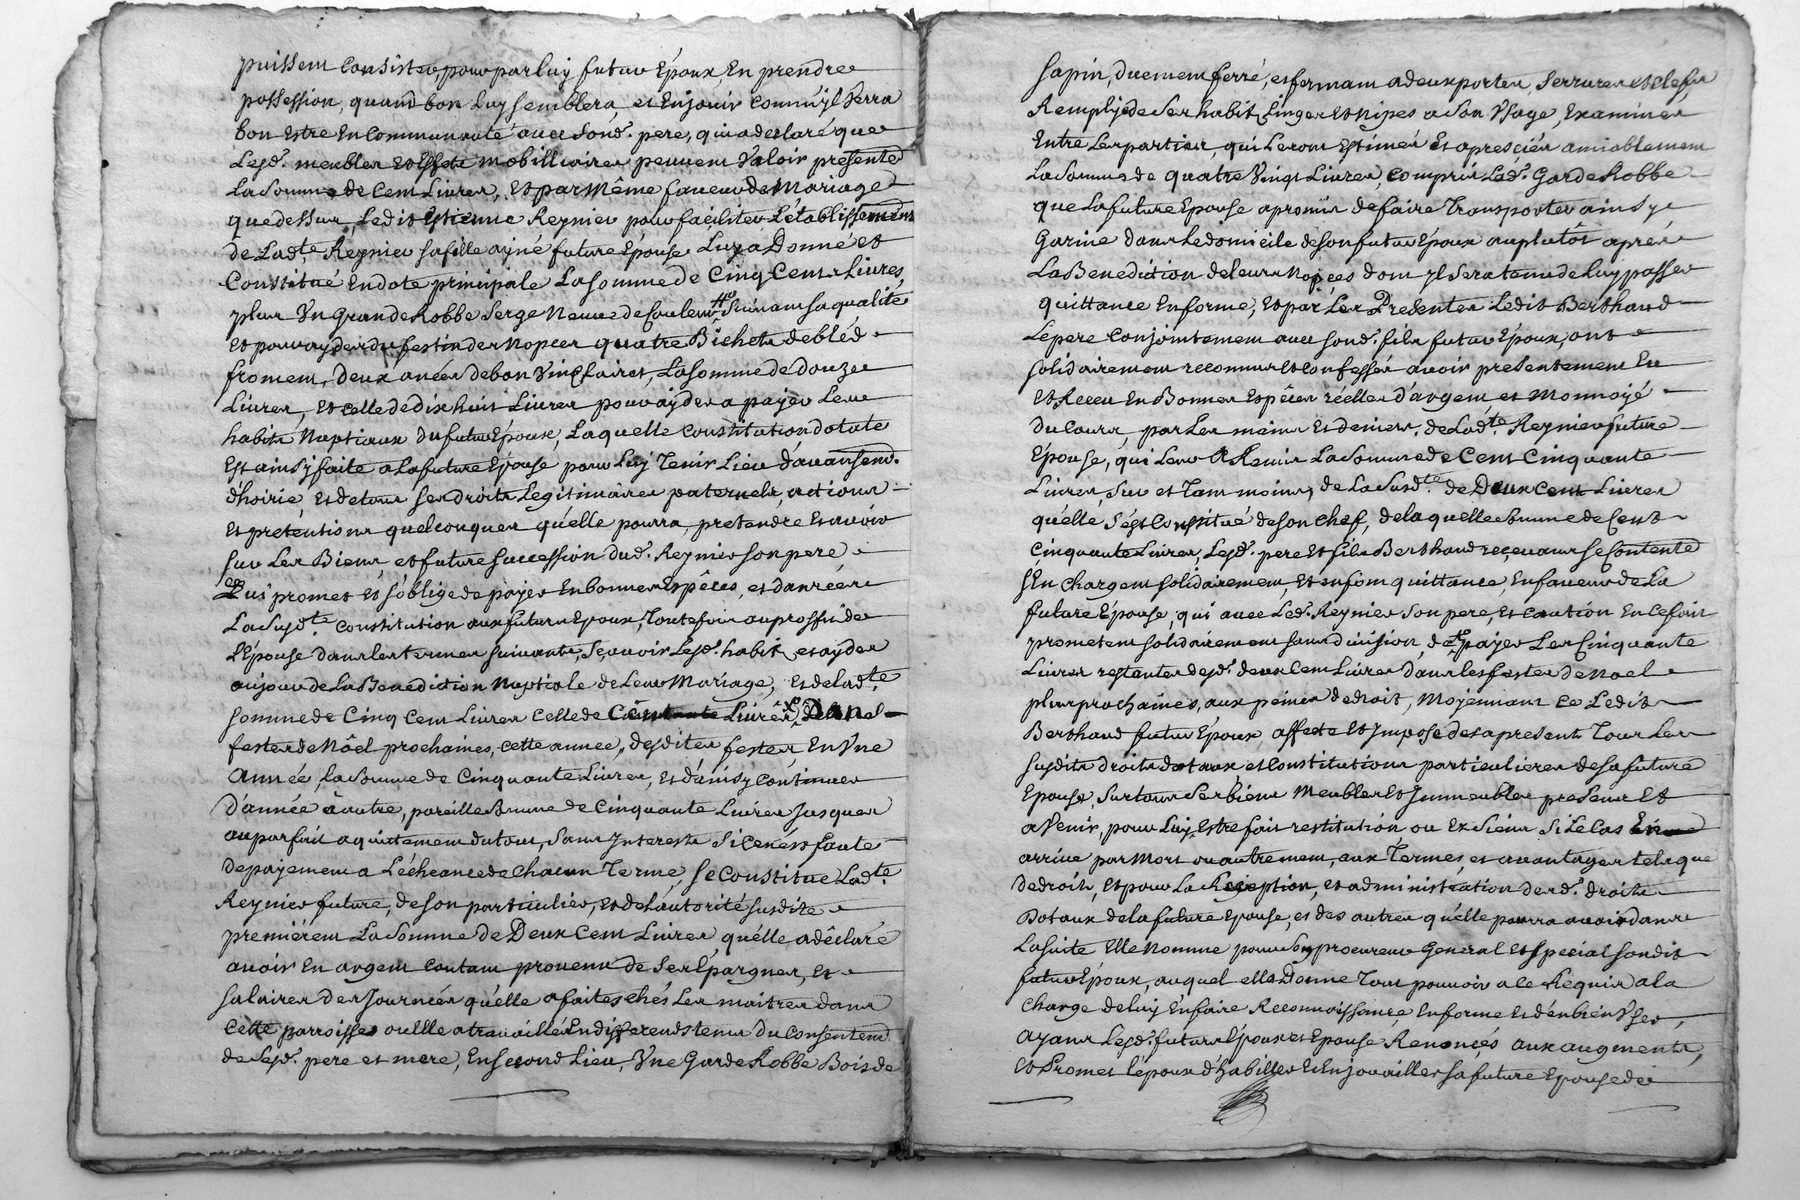 puissent consister, pour par luy futur Époux En prendre
possession, quand bon luy semblera, et Enjouir comm'yl verra
bon estre En communauté avec sond. pere, qui a declaré que
Lesd. meubles et Effets mobilliaires peuvent valoir presente
La Somme de Cent Livres, Et par Même faveur de Mariage
que dessus, Ledit Estienne Reynier pour faciliter L'établissement
de Ladte Reynier sa fille ainé future Épouse Luy a Donné et
Constitué En dote principale La somme de Cinq Cents Livres,
plus Un Garde Robbe Serge Neuve de Couleur, Suivant sa qualité
Et pour ayder du festin des Nopces quatre Bichets de bled
froment, Deux anées de bon Vin Clairet, La somme de douze
Livres, Et celle de dix huit Livres pour ayder a payer Leur
habits Nuptiaux du futur Époux, Laquelle Constitution dotale
Est ainsy faite a La future Épouse pour Luy Tenir Lieu d'avansemt.
d'hoirie, Et de tous ses droits Legitimaires paternels, actions
Et pretentions quelconques qu'elle pourra pretendre Et avoir
sur Les Biens et future succession dud. Reynier son pere
Qui promet et s'oblige de payer En bonnes Espêces, et danrées
La Susdte Constitution aux futurs Époux, Toutefois au proffit de
L'Épouse dans Les termes suivants, Sçavoir Lesd. habits et ayder
au jour de La Benediction Nuptiale de Leur Mariage, Et de Ladte
somme de Cinq Cent Livres Celle de Livres
festes de Nôel prochaines, cette année, desdites festes En Une
année, La Somme de Cinquante Livres, Et d'ainsy Continuer
D'année à autre, pareille Somme de Cinquante Livres Jusques
au parfait aquittement du tout, Sans Interests Si ce n'est faute
de payement a L'écheance de chacun Terme, Se Constitue Ladte
Reynier future, de son particulier, Et de l'autorité susdite
premiérement La Somme de Deux Cent Livres qu'elle a déclaré
avoir En argent Contant provenu de Ses Épargnes, Et
salaires des Journées qu'elle a faites chés Les maitres dans
Cette parroisse ou Elle a travaillé En differends tems Du Consentemt
de Sesd. pere et mere, En second Lieu, Une Garde Robbe Bois de
sapin, duement ferré, et fermant a deux portes, Serrures et Clefs,
Remplie de Ses habits, Linges Et Nipes a Son Usage, Examinés
Entre Les parties, qui Les ont Estimés Et apreciés amiablement
La Somme de quatre Vingt Livres, Compris Lad. Garde Robbe
que La future Epouse a promis de faire Transporter ainsy
Garnie dans Le domicile de son futur Époux au plutôt aprés
La Benediction de Leurs Nopces dont yl Sera tenu de Luy passer
quittance En forme, Et par Les Presentes Ledit Berthaud
Le pere Conjointement avec sond. fils futur Époux, ont
solidairement reconnus Et confessés avoir presentement Eu
Et Receu En Bonnes Espêces réelles d'argent et Monnoyé
Du Cours, par Les mains Et deniers, de Ladte Reynier future
Épouse, qui Leur A Remis La Somme de Cent Cinquante
Livres, Sur et Tant moins, de La Susdte de Deux Cent Livres
qu'elle s'est Constitué de son Chef, de laquelle Somme de Cent
Cinquante Livres, Lesd. pere Et fils Berthaud reçevans se Contente
s'En chargent solidairement, Et en font quittance, En faveur de La
future Épouse, qui avec Led. Reynier son pere, Et Caution En Ce fait
prometent solidairement sans division, de payer Les Cinquante
Livres restantes desd. deux Cent Livres dans Les festes de Noel
plus prochaines, aux peines de droit, Moyennant Ce Ledit
Berthaud futur Époux affecte Et Impose des a present Tous Les
susdits droits dotaux et Constitutions particulieres de sa future
Epouse, Sur tous Ses biens Meubles Et Immeubles presens Et
a Venir, pour Luy Estre fait restitution ou Ex Siens Si Le Cas
arrive par Mort ou autrement, aux Termes, et avantages tels que
De droit, Et pour La Reception, Et administration desd. droits
Dotaux de la future Epouse, et des autres qu'elle pourra avoir dans
La suite, Elle Nomme pour Son procureur General et Special son dit
futur Époux, auquel elle Donne Tout pouvoir a ce Requis a la
Charge de luy En faire Reconnoissance En forme Et d'En bien User,
Ayans Lesd. futurs Epoux et Epouse Renoncés aux augments,
Et Promet l'époux d'habiller Et Enjouailler sa future Epouse de